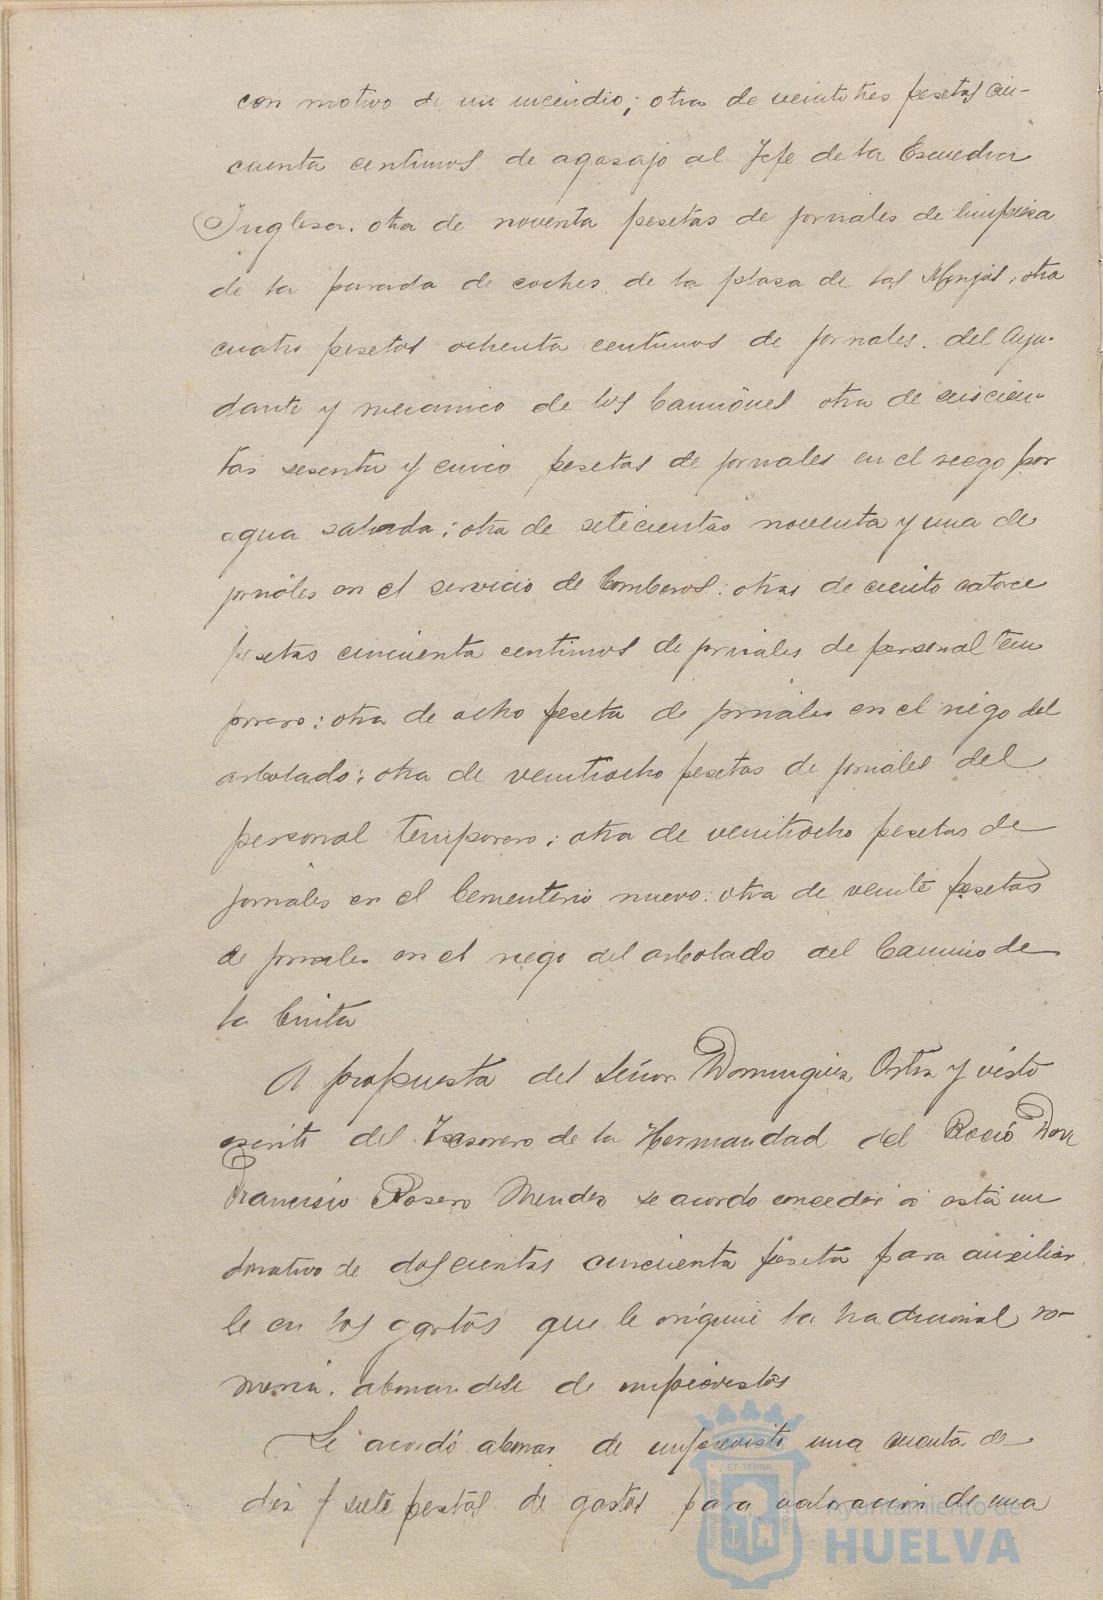 con motivo de un incendio; otra de veintitres pesetas cin-
cuenta centimos de agasajo al Jefe de la Escuadra
Inglesa. otra de noventa pesetas de jornales de limpieza
de la parada de coches de la plaza de las Monjas. otra
cuatro pesetas ochenta centimos de jornales. del Ayu-
dante y mecanico de los Camiones otra de seiscien-
tas sesenta y cinco pesetas de jornales en el riego por
agua salada; otra de setecientas noventa y una de
jornales en el servicio de bomberos: otras de ciento catorce
pesetas cincuenta centimos de jornales de personal tem
porero: otra de ocho peseta de jornales en el riego del
arbolado; otra de veintiocho pesetas de jornales del
personal temporero; otra de veintiocho pesetas de
jornales en el Cementerio nuevo: otra de veinte pesetas
de jornales en el riego del arbolado del Camino de
la Cinta
A propuesta del Señor Dominguez Ortiz y visto
escrito del Tesorero de la Hermandad del Rocio Don
Francisco Rosero Mendez se acordo conceder a esta un
donativo de doscientas cincuenta peseta para auxiliar
le en los gastos que le origine la tradicional ro-
meria. abonandose de imprevistos
Se acordó abonar de imprevisto una cuenta de
diez y siete pesetas de gastos para valoracion de una
ET TERRA
Ayuntamiento de
HUELVA